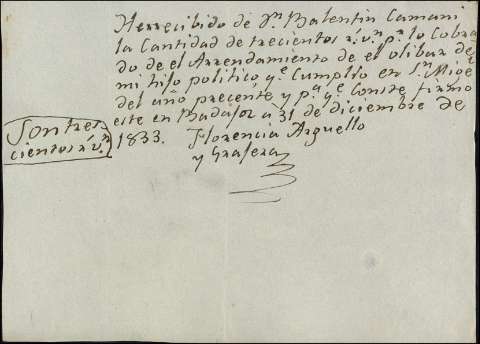 Herrecibido de Dn Balentin Camani
la Cantidad de trecientos rs. vn. pr. lo Cobra
do de el Arrendamiento de el olibar de
mi hijo politico qe Cumplio en Sn Migel
del año precente y pa. qe Conste firmo
este en Badajos a 31 de diciembre de
1833.
Florencia Arguello
y Grajera
Son tres
cientos rs vn